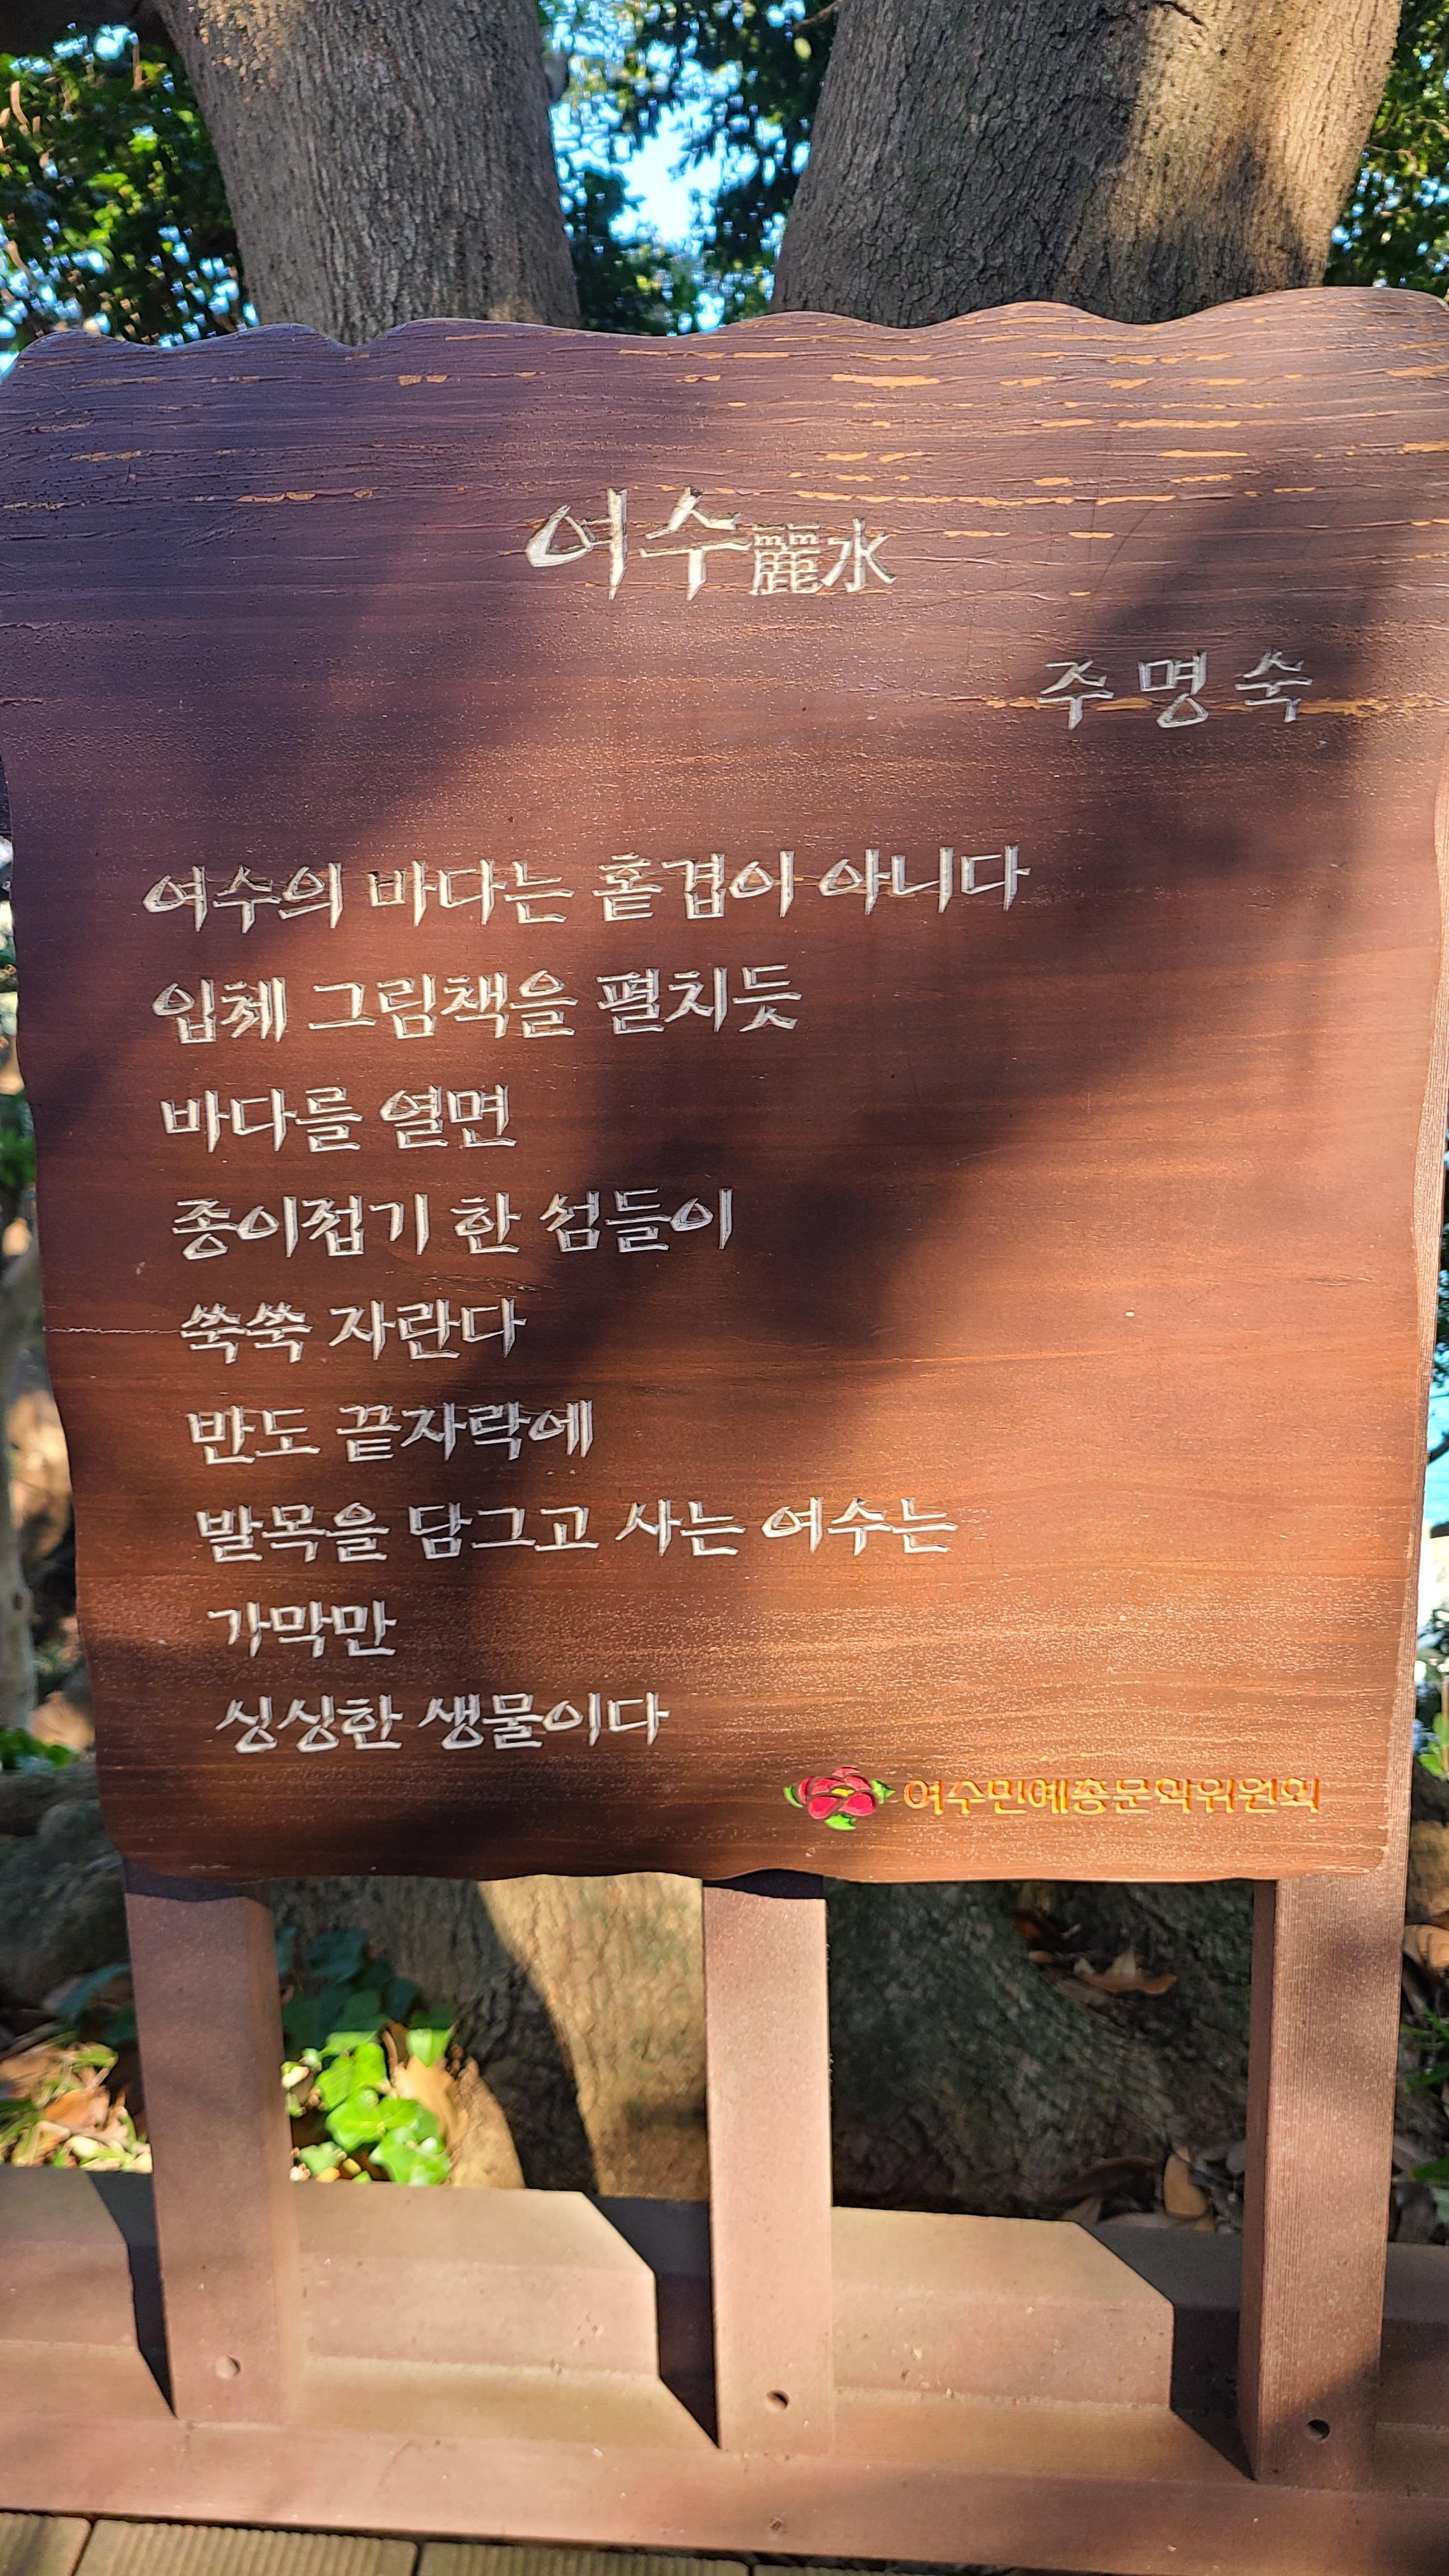 여수麗水
주명숙
여수의 바다는 홑겹이 아니다
입체 그림책을 펼치듯
바다를 열면
종이접기 한 섬들이
쑥쑥 자란다
반도 끝자락에
발목을 담그고 사는 여수는
가막만
싱싱한 생물이다
여수민예총문학위원회